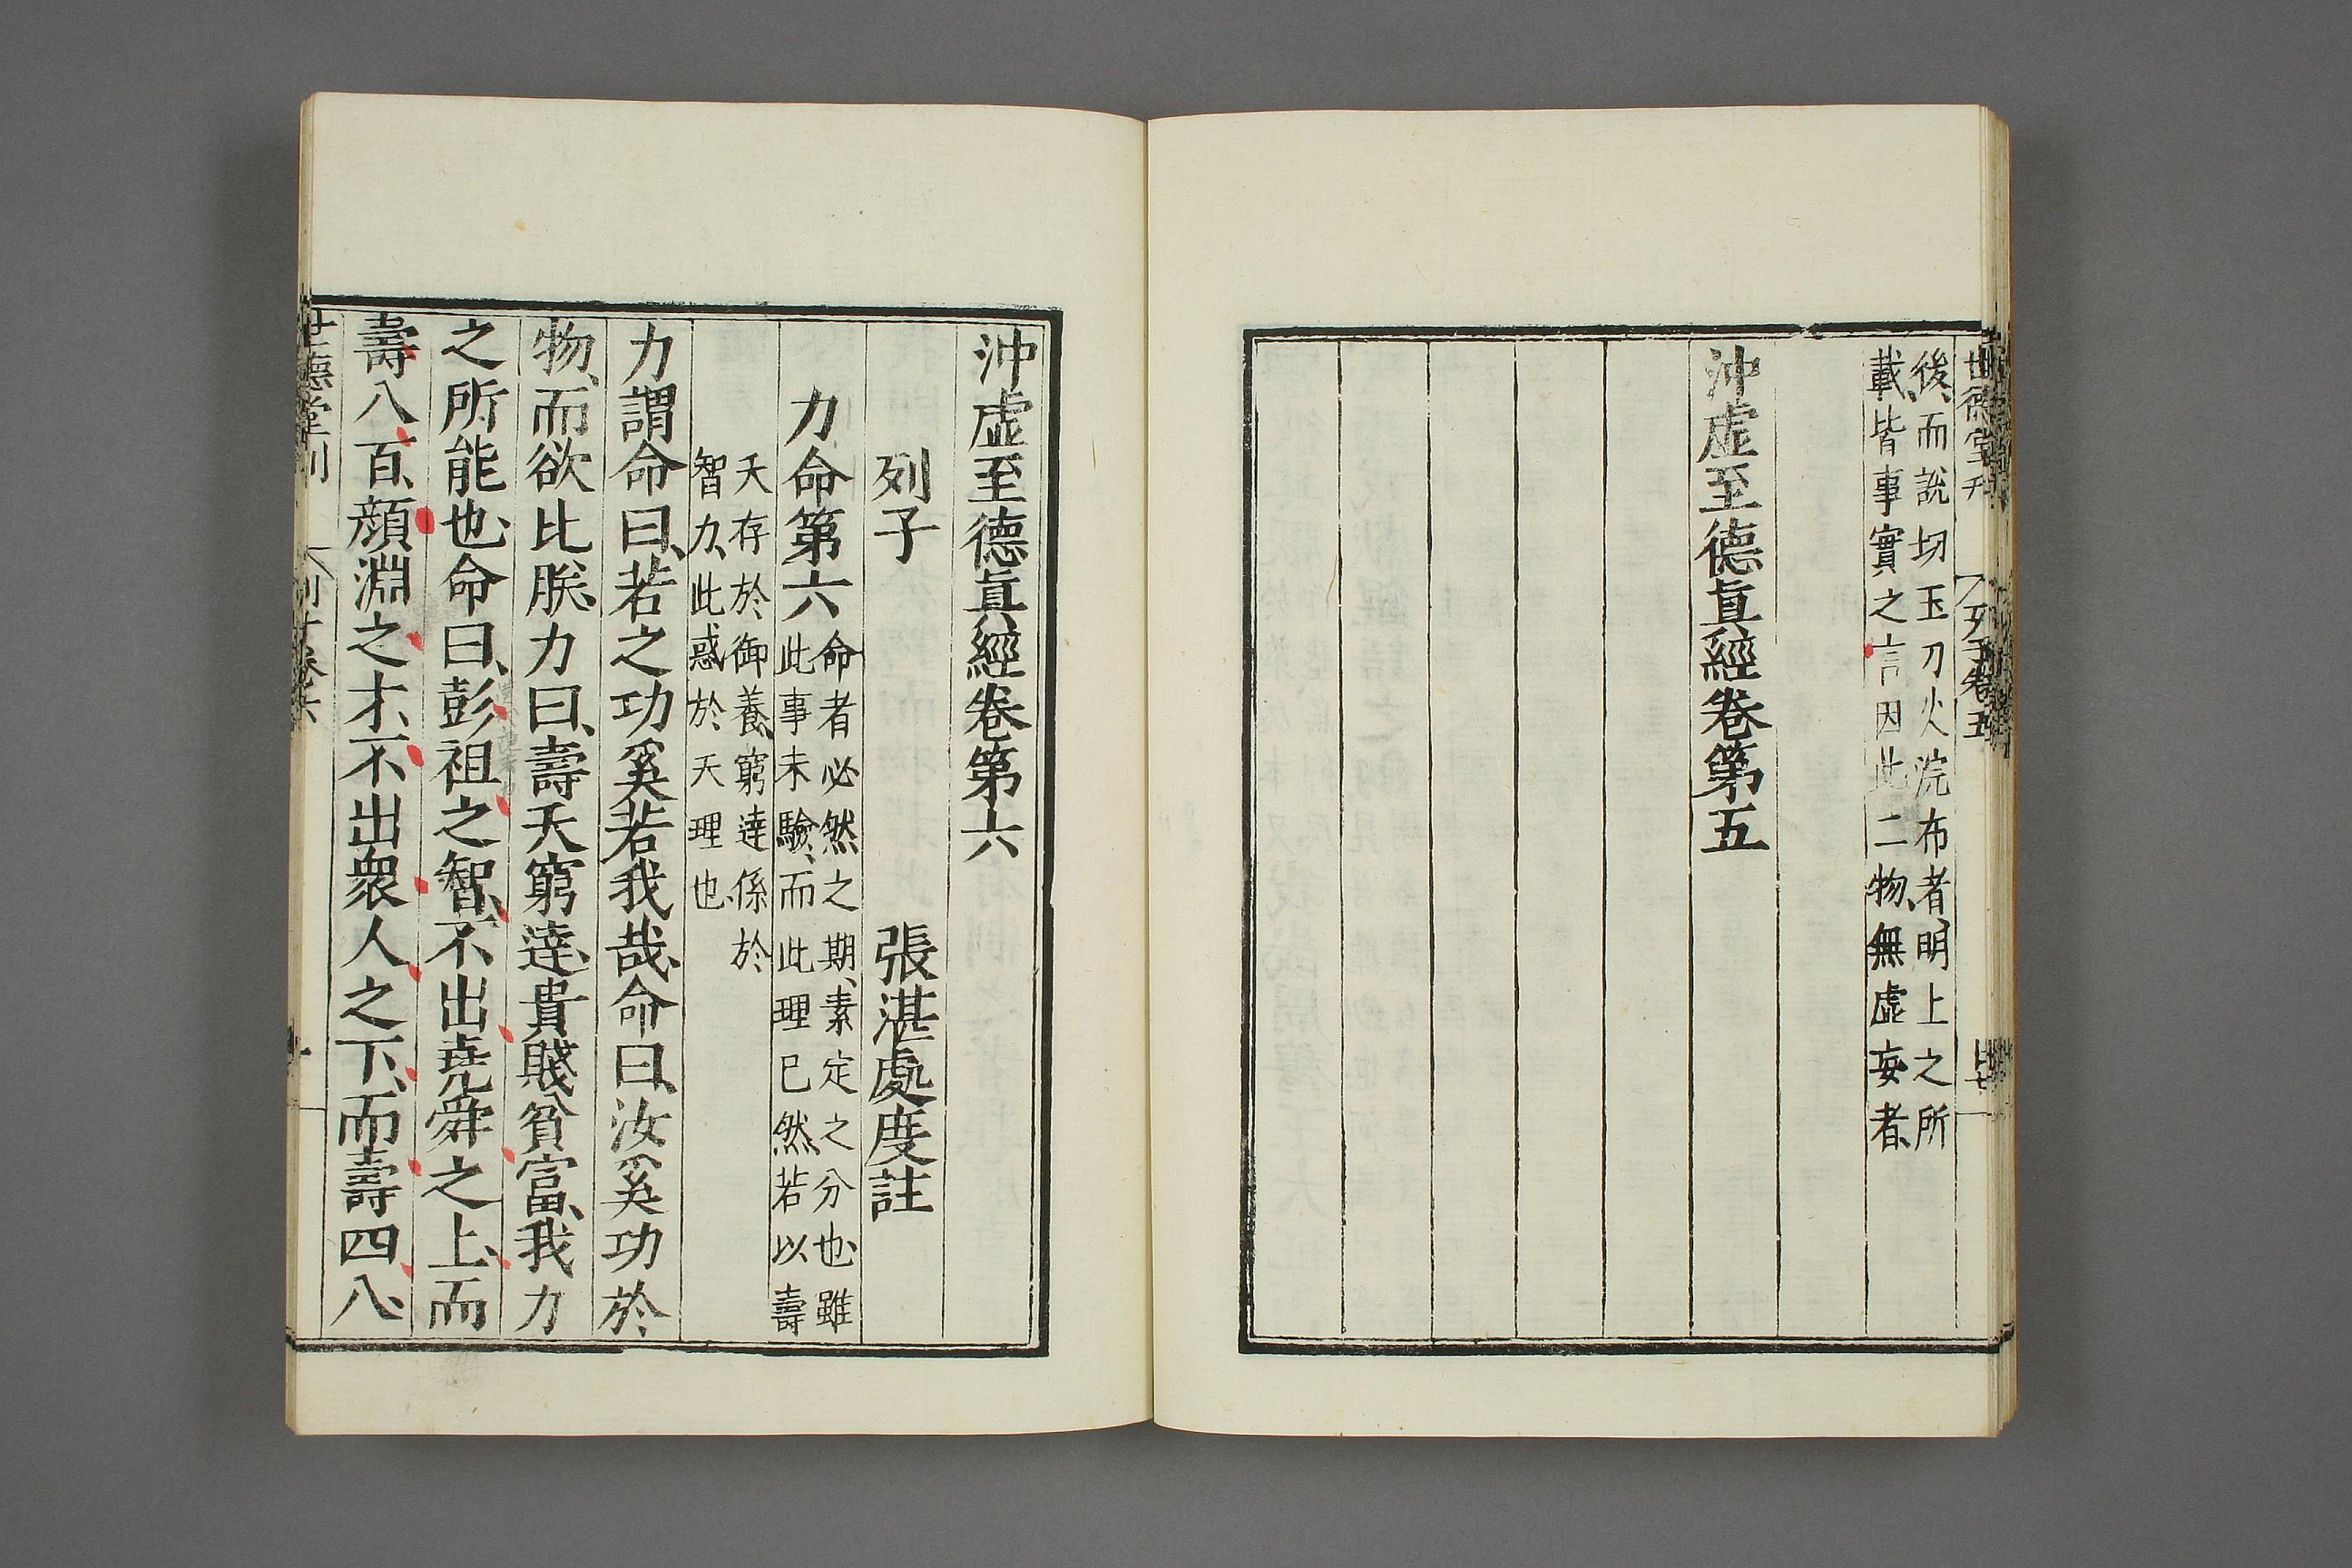 世德堂刊
列子卷五
後、而說切玉刀火浣布者、明上之所
載、皆事實之言因此二物、無虛妄者、
沖虛至德眞經卷第五
沖虛至德眞經卷第六
列子 張湛處度註
力命第六
命者必然之期、素定之分也、雖
此事未驗、而此理已然若以壽
夭存於御養、窮達係於
智力、此惑於天理也、
力謂命曰、若之功奚若我哉、命曰、汝奚功於
物、而欲比朕、力曰、壽夭窮達、貴賤貧富、我力
之所能也、命曰、彭祖之智、不出堯舜之上、而
壽八百、顏淵之才、不出衆人之下、而壽四八、
世德堂刊
列子卷六
一